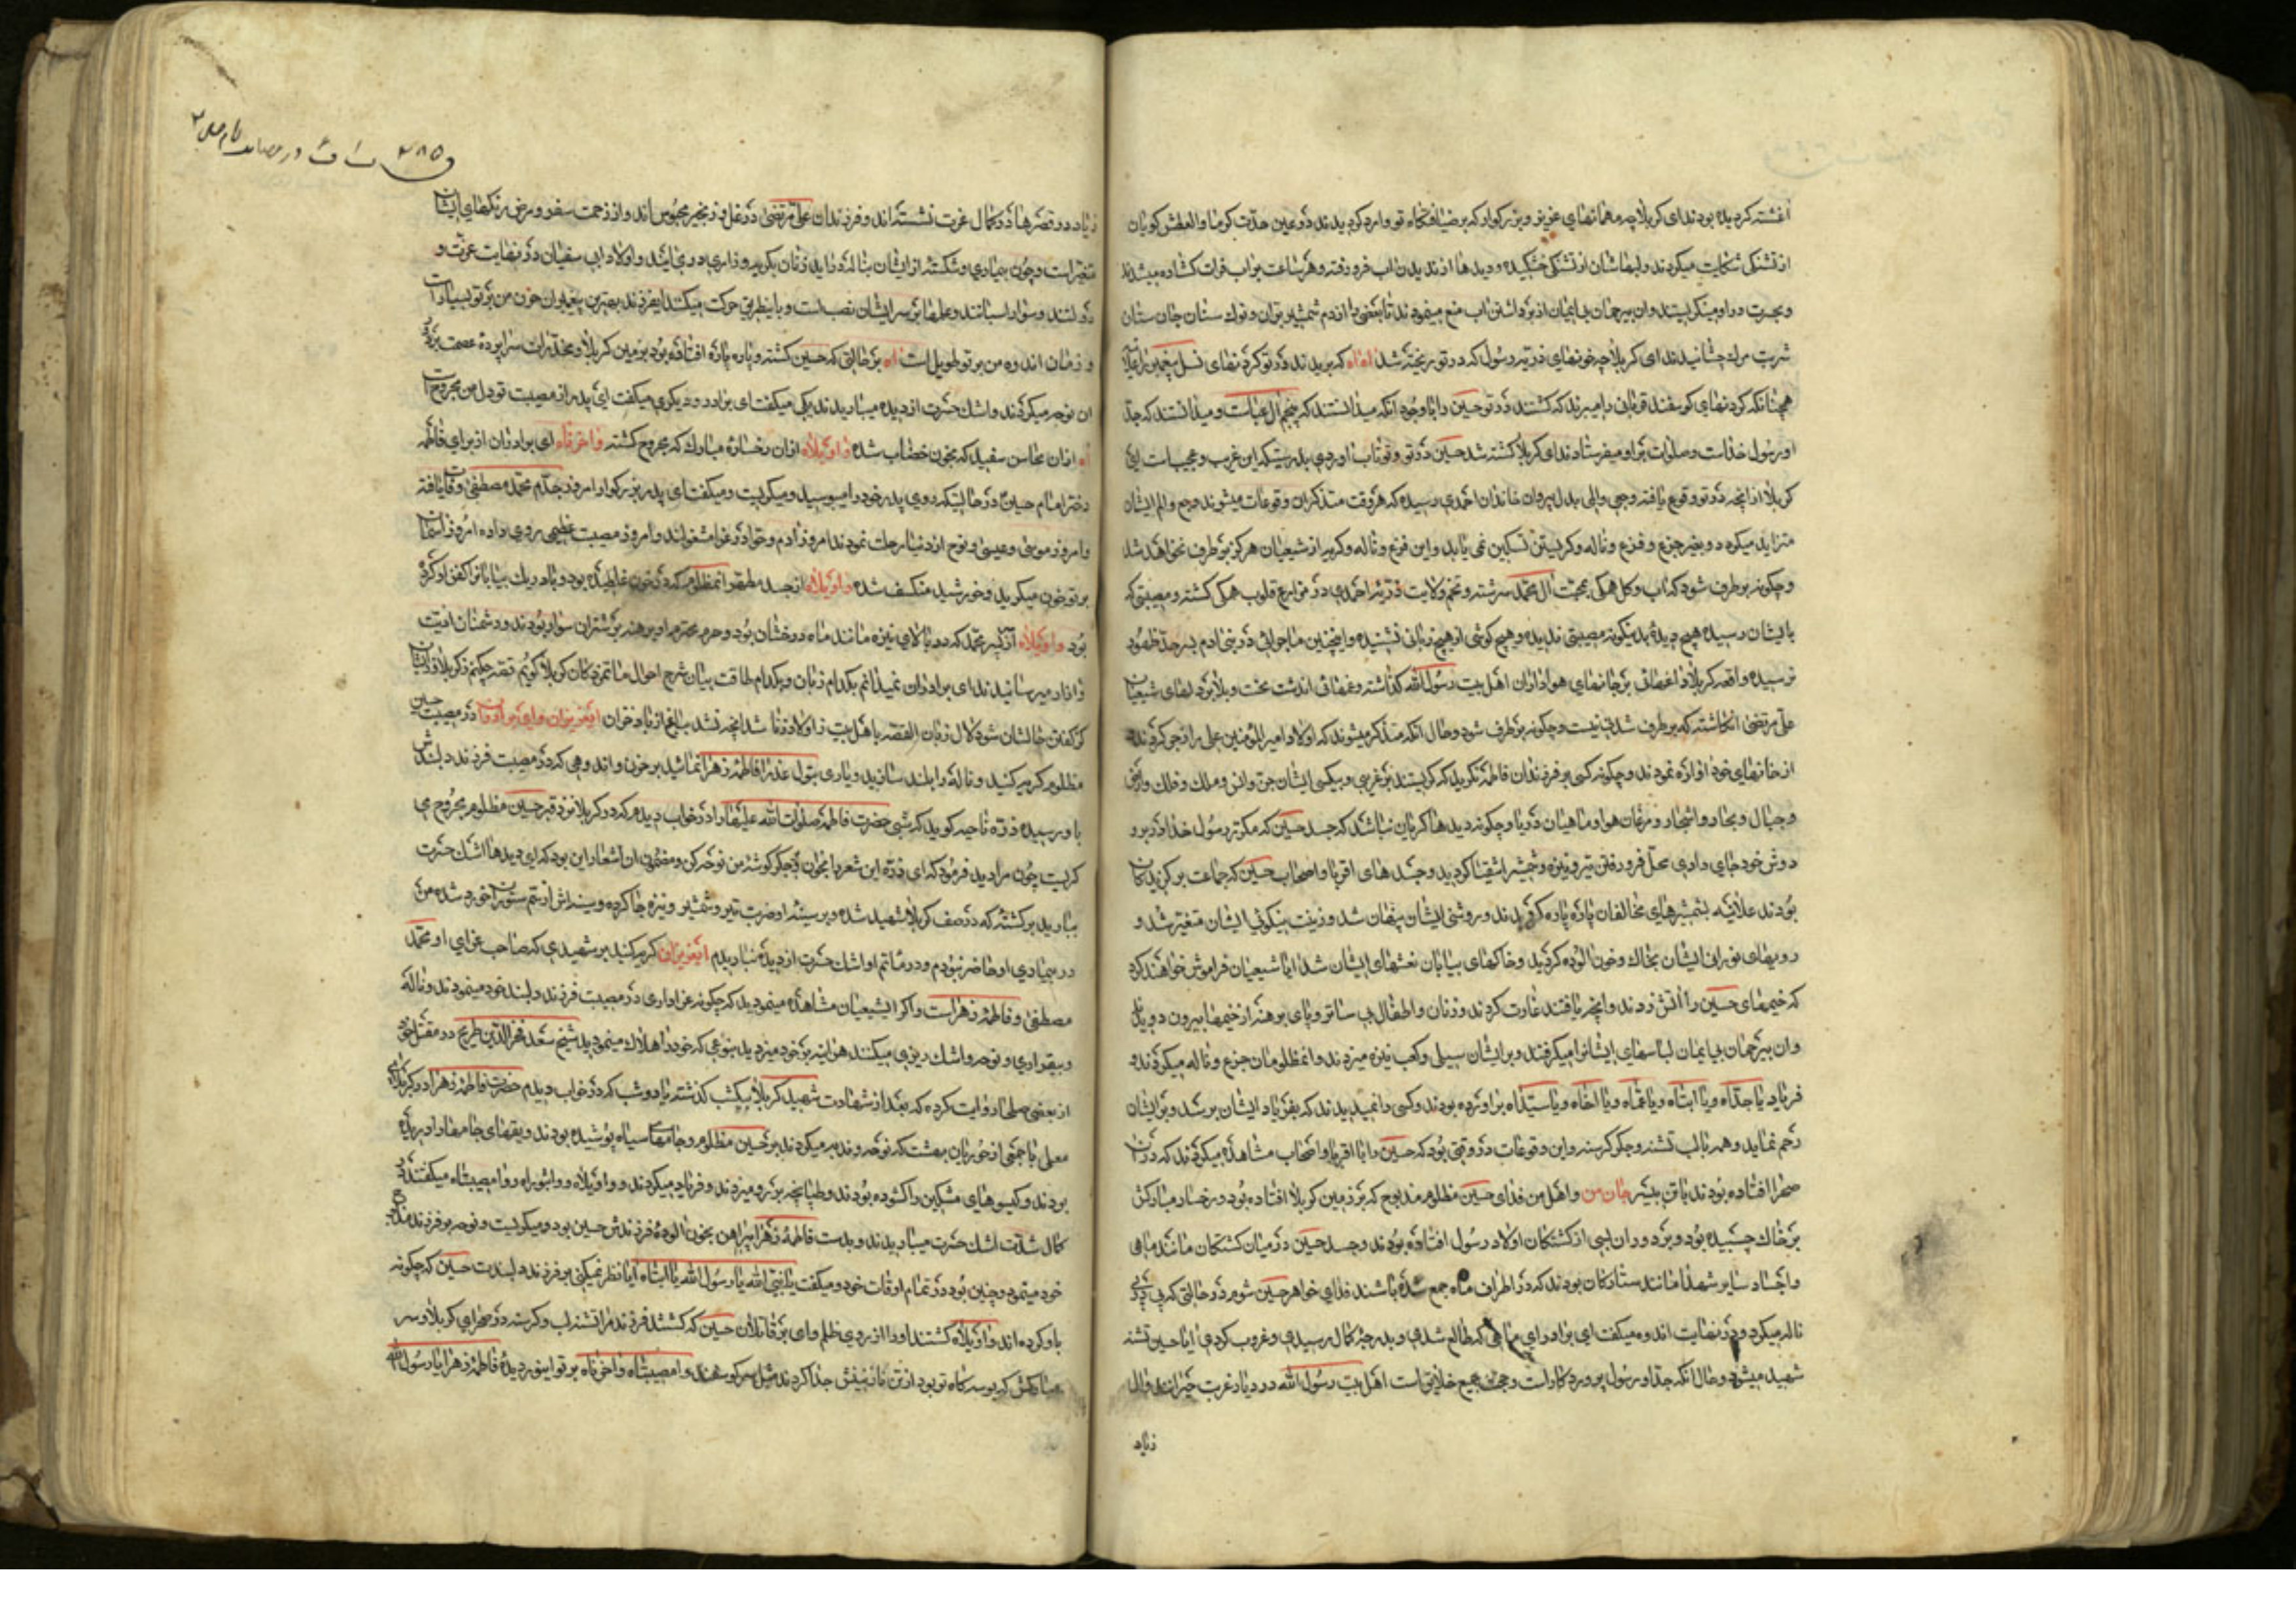 اغشته کردیده بودند ای کربلا چه مهمانهای عزیز و بزرکوار که بر ضیافتکاه تو وارد کردیدند و در عین حدّت کرما والعطش کویان
از تشنکی شکایت میکردند و لبهاشان از تشنکی خشکیده و دیدها از ندیدن اب فرو رفته و هر ساعت بر اب فرات کشاده میشدند
و بحسرت در او مینکریستند و ان بیرحمان بی ایمان از برداشتن اب منع مینمودند تا بعضی را از دم شمشیر بران و نوک سنان جان ستان
شربت مرک چشانیدند ای کربلا چه خونهای ذریّه رسول که در تو ریخته شد اه اه که بریدند در تو کردنهای نسل پیغمبر را علانیه
همچنانکه کردنهای کوسفند قربانی را میبرند که کشتند در تو حسین را با وجود انکه میدانستند که پنجم ال عباست و میدانستند که جدّ
او رسول خداست و صلوات بر او میفرستادند ای کربلا کشته شد حسین در تو و تو تاب اوردی بدرستیکه این غریب و عجیب است ای
کربلا از انچه در تو وقوع یافته وجعی و المی بدل پیروان خاندان احمدی رسیده که هر وقت متذکر این وقوعات میشوند وجع و الم ایشان
متزاید میکردد و بغیر جزع و فزع و ناله و کریستن تسکین نمی یابد و این فزع و ناله و کریه از شیعیان هرکز بر طرف نخواهد شد
و چکونه بر طرف شود که اب و کل همکی بمحبّت ال محمّد سرشته و تخم ولایت ذریّه احمدی در مزارع قلوب همکی کشته و مصیبتی که
بایشان رسیده هیچ دیدۀ بدینکونه مصیبتی ندیده و هیچ کوشی از هیچ زبانی نشنیده و اینچنین ماجرائی در بنی ادم بسر حدّ ظهور
نرسیده واقعه کربلا داغهائی بر جانهای هواداران اهل بیت رسول الله کذاشته و غمهائی اندشت محنت و بلا بر دلهای شیعیان
علی مرتضی انکاشته که بر طرف شدنی نیست و چکونه بر طرف شود و حال انکه متذکر میشوند که اولاد امیر المؤمنین علی را زجر کردند
از خانهای خود اواره نمودند و چکونه کسی بر فرزندان فاطمه نکرید که کریستند بر غریبی و بیکسی ایشان جن و انس و ملک و فلک و ارض
و جبال و بحار و اشجار و مرغان هوا و ماهیان دریا و چکونه دیدها کریان نباشد که جسد حسین که مکرّر رسول خدا او را بر
دوش خود جای دادی محلّ فرو رفتن تیر و نیزه و شمشیر اشقیا کردید و جسدهای اقربا و اصحاب حسین که جماعت برکزیدکان
بودند علانیه بشمشیرهای مخالفان پاره پاره کردیدند و روشنی ایشان پنهان شد و زینت نیکوئی ایشان متغیّر شد و
رویهای نورانی ایشان بخاک و خون الوده کردید و خاکهای بیابان نعشهای ایشان شد ایا شیعیان فراموش خواهند کرد
که خیمهای حسین را اتش زدند و انچه یافتند غارت کردند و زنان و اطفال بی ساتر و پای برهنه از خیمها بیرون دویدند
و ان بیرحمان بی ایمان لباسهای ایشانرا میکرفتند و بر ایشان سیلی و کعب نیزه میزدند و انمظلومان جزع و ناله میکردند و
فریاد یا جدّاه و یا ابتاه و یا عمّاه و یا اخاه و یا سیّداه بر اورده بودند و کسی را نمیدیدند که بفریاد ایشان برسد و بر ایشان
رحم نماید و همه با لب تشنه و جکر کرسنه و این وقوعات در وقتی بود که حسین را با اقربا و اصحاب مشاهده میکردند که در ان
صحرا افتاده بودند با تن بیسر جان من و اهل من فدای حسین مظلوم مذبوح که بر زمین کربلا افتاده بود و رخسار مبارکش
بر خاک چسبیده بود و بر دور ان بسی از کشتکان اولاد رسول افتاده بودند و جسد حسین در میان کشتکان مانند ماهی
و اجساد سایر شهدا مانند ستارکان بودند که در اطراف ماه جمع شده باشند فدای خواهر حسین شوم در حالتی که پی در پی
ناله میکرد و در نهایت اندوه میکفت ای برادر ای ماهی که طالع شدی و بدرجه کمال رسیدی و غروب کردی ایا حسین تشنه
شهید میشود و حال انکه جدّ او رسول پروردکار است و حجّت بر جمیع خلایق است اهل بیت رسول الله در دیار غربت حیرانند و ال
زیاد
۲۸۵
زیاد در قصرها در کمال عزّت نشسته اند و فرزندان علی مرتضی در غل و زنجیر محبوس اند و از زحمت سفر و مرض رنکهای ایشان
متغیّر است و چون بیماری و شکسته از ایشان بناله در اید زنان بکریه و زاری در می ایند و اولاد ابی سفیان در نهایت عزّت و
دولتند و سوار اسبانند و علمها بر سر ایشان نصب است و باینطریق حرکت میکنند ایفرزند بهترین پیغمبران حزن من بر تو بسیار است
و زمان اندوه من بر تو طویل است اه بر حالتی که حسین کشته و پاره پاره افتاده بود بر زمین کربلا و مخدّرات سراپرده عصمت بر دور
ان نوحه میکردند و اشک حسرت از دیده میباریدند یکی میکفت ای برادر و دیکری میکفت ای پدر از مصیبت تو دل من مجروح است
اه از ان محاسن سفید که بخون خضاب شده واویلاه از ان رخسارۀ مبارک که مجروح کشته واحزناه ای برادران از برای فاطمه
دختر امام حسین در حالتیکه روی پدر خود را میبوسید و میکریست و میکفت ای پدر بزرکوار امروز جدّم محمّد مصطفی وفات یافته
و امروز موسی و عیسی و نوح از دنیا رحلت نمودند امروز ادم و حوّا در عزا مشغولند و امروز مصیبت عظیمی روی داده امروز اسمان
بر تو خون میکرید و خورشید منکسف شده واویلاه از جسد مطهّر انمظلوم که در خون غلطیده بود و باد ریک بیابانرا کفن او کرده
بود واویلاه از سر محمّد که در بالای نیزه مانند ماه درخشان بود و حرم محترم او برهنه بر شتران سوار بودند و دشمنان اذیت
و ازار میرسانیدند ای برادران نمیدانم بکدام زبان و بکدام طاقت بیان شرح احوال ماتمزدکان کربلا کویم
کر کفتن حالشان شود لال زبان القصّه باهل بیت و اولاد زنا شد انچه نشد ایعزیزان وای برادران در مصیبت حسین
مظلوم کریه کنید و ناله را بلند سازید و یاری بتول عذرا فاطمه زهرا نمائید بر حزن و اندوهی که در مصیبت فرزند دلبندش
باو رسیده ذرّه ناحیه کوید که شبی حضرت فاطمه صلوات الله علیها را در خواب دیدم که در کربلا نزد قبر حسین مظلوم مجروح می
کریست چون مرا دید فرمود که ای ذرّه این شعر را بخوان و بر جکر کوشۀ من نوحه کن و مضمون ان اشعار این بود که ای دیدها اشک حسرت
ببارید بر کشتۀ که در صف کربلا شهید شده و بر سینه او ضربت تیر و شمشیر و نیزه جا کرده و سینه اش از سم ستوران خورد شده من
در بیماری او حاضر نبودم و در ماتم او اشک حسرت از دیده نباریدم ایعزیزان کریه کنید بر شهیدی که صاحب عزای او محمّد
مصطفی و فاطمه زهراست و اکر ایشیعیان مشاهده مینمودید که چکونه عزاداری در مصیبت فرزند دلبند خود مینمودند و ناله
و بیقراری و نوحه و اشک ریزی میکنند هر اینه بر خود میزدید بنوعی که خود را هلاک مینمودید شیخ سعد فخر الدّین طریحی در مقتل خود
از بعضی صلحا روایت کرده که بعد از شهادت شهید کربلا بیکشب کذشته یا دو شب که در خواب دیدم حضرت فاطمه زهرا را در کربلای
معلّی با جمعی از حوریان بهشت که نوحه و ندبه میکردند بر حسین مظلوم و جامهای سیاه پوشیده بودند و یقهای جامها را دریده
بودند و کیسوهای مشکین را کشوده بودند و طپانچه بر رو میزدند و فریاد میکردند و واویلاه و واثبوراه و وامصیبتاه میکفتند و در
کمال شدّت اشک حسرت میباریدند و بدست فاطمه زهرا پیراهن بخون الودۀ فرزندش حسین بود و میکریست و نوحه بر فرزند مذبوح
خود مینمود و چنین بود در تمام اوقات خود و میکفت یا نبیّ الله یا رسول الله یا ابتاه ایا نظر نمیکنی بر فرزند دلبندت حسین که چکونه
باو کرده اند واویلاه کشتند او را از روی ظلم وای بر قاتلان حسین که کشتند فرزند مرا تشنه لب و کرسنه در صحرای کربلا و سر
مبارکش که بوسه کاه تو بود از تن نازنینش جدا کردند مثل سر کوسفند وامصیبتاه واحزناه بر تو ای نور دیدۀ فاطمه زهرا یا رسول الله